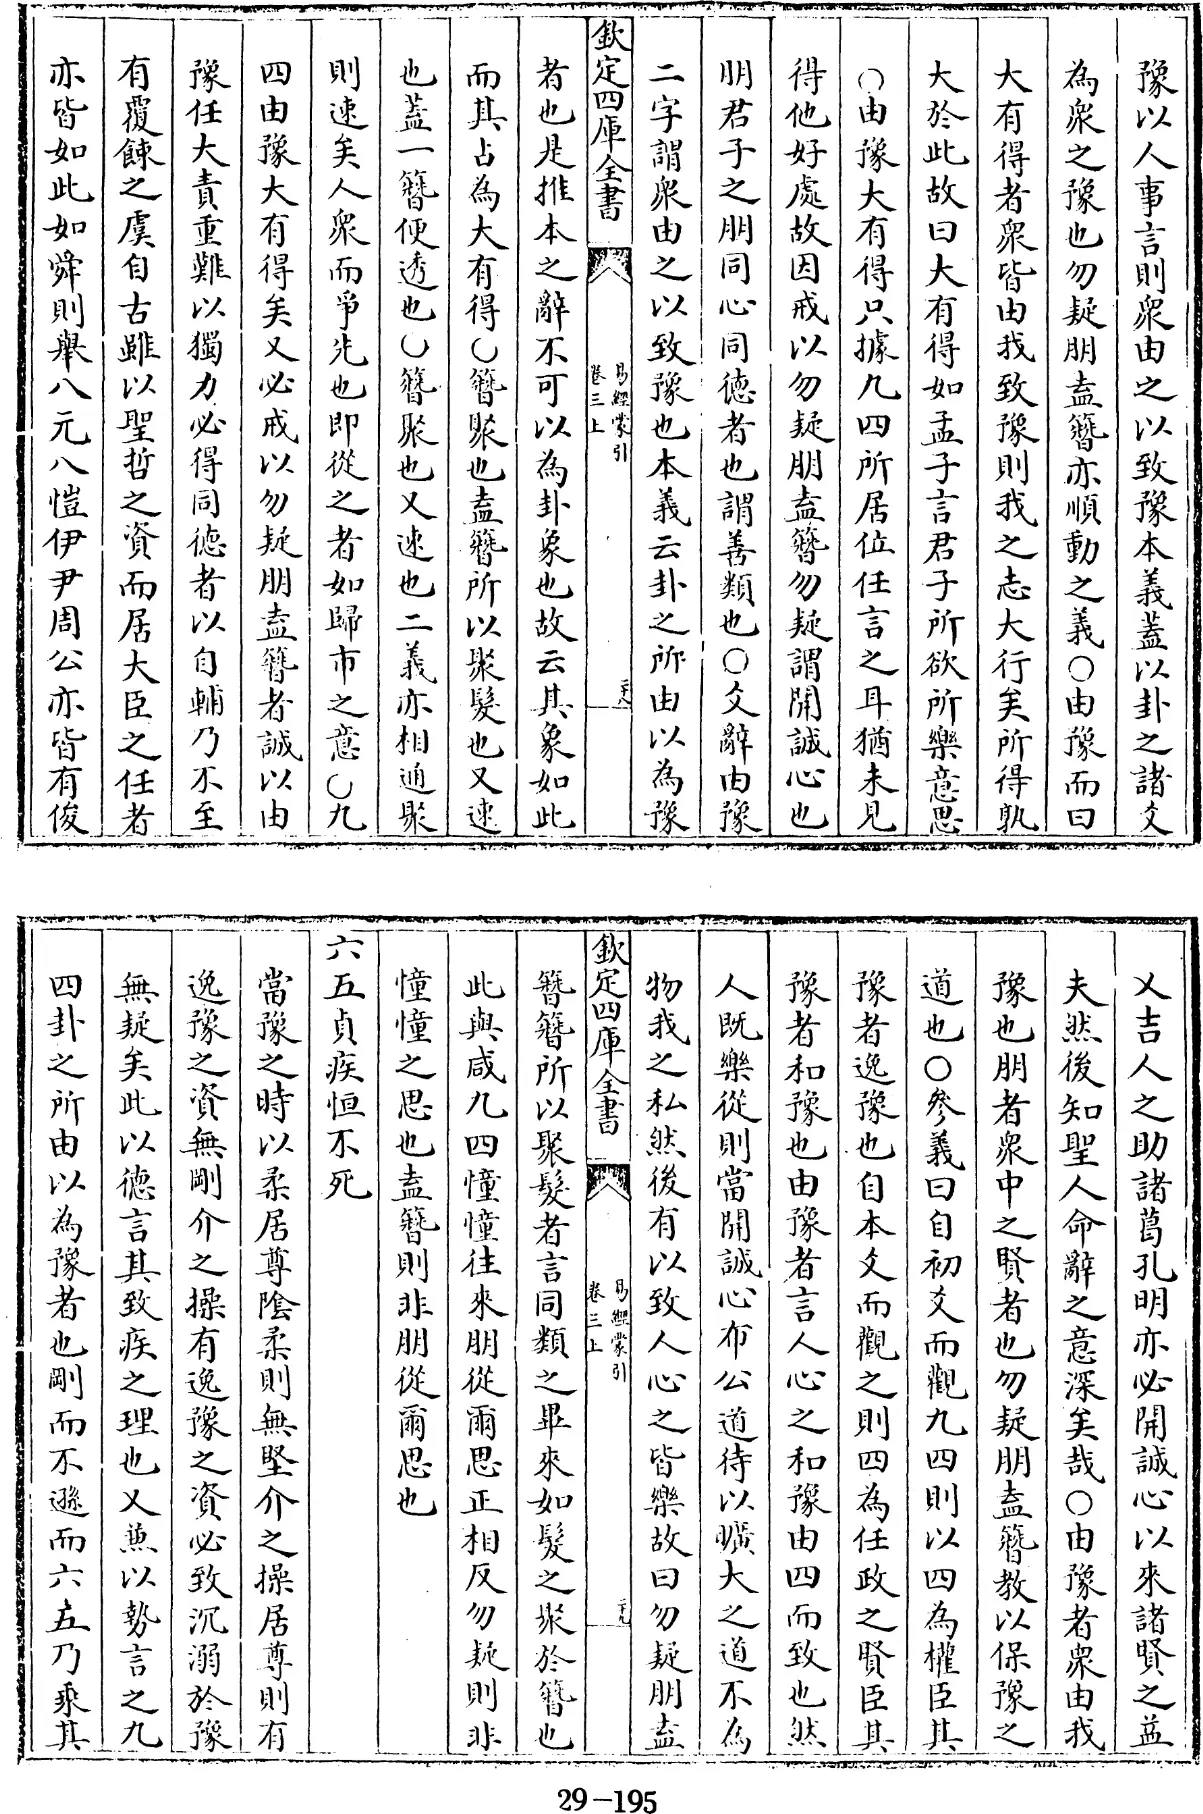 豫以人事言則衆由之以致豫本義蓋以卦之諸爻
為衆之豫也勿疑朋盍簪亦順動之義○由豫而曰
大有得者衆皆由我致豫則我之志大行矣所得孰
大於此故曰大有得如孟子言君子所欲所樂意思
○由豫大有得只據九四所居位任言之耳猶未見
得他好處故因戒以勿疑朋盍簪勿疑謂開誠心也
朋君子之朋同心同德者也謂善類也○爻辭由豫
二字謂衆由之以致豫也本義云卦之所由以為豫
欽定四庫全書
易經蒙引
卷三上
二十八
者也是推本之辭不可以為卦象也故云其象如此
而其占為大有得○簪聚也盍簪所以聚髮也又速
也蓋一簪便透也○簪聚也又速也二義亦相通聚
則速矣人衆而爭先也即從之者如歸市之意○九
四由豫大有得矣又必戒以勿疑朋盍簪者誠以由
豫任大責重難以獨力必得同德者以自輔乃不至
有覆餗之虞自古雖以聖哲之資而居大臣之任者
亦皆如此如舜則舉八元八愷伊尹周公亦皆有俊
乂吉人之助諸葛孔明亦必開誠心以來諸賢之益
夫然後知聖人命辭之意深矣哉○由豫者衆由我
豫也朋者衆中之賢者也勿疑朋盍簪教以保豫之
道也○參義曰自初爻而觀九四則以四為權臣其
豫者逸豫也自本爻而觀之則四為任政之賢臣其
豫者和豫也由豫者言人心之和豫由四而致也然
人既樂從則當開誠心布公道待以曠大之道不為
物我之私然後有以致人心之皆樂故曰勿疑朋盍
欽定四庫全書
易經蒙引
卷三上
二十九
簪簪所以聚髮者言同類之畢來如髮之聚於簪也
此與咸九四憧憧往來朋從爾思正相反勿疑則非
憧憧之思也盍簪則非朋從爾思也
六五貞疾恒不死
當豫之時以柔居尊陰柔則無堅介之操居尊則有
逸豫之資無剛介之操有逸豫之資必致沉溺於豫
無疑矣此以德言其致疾之理也又兼以勢言之九
四卦之所由以為豫者也剛而不遜而六五乃乘其
29-195